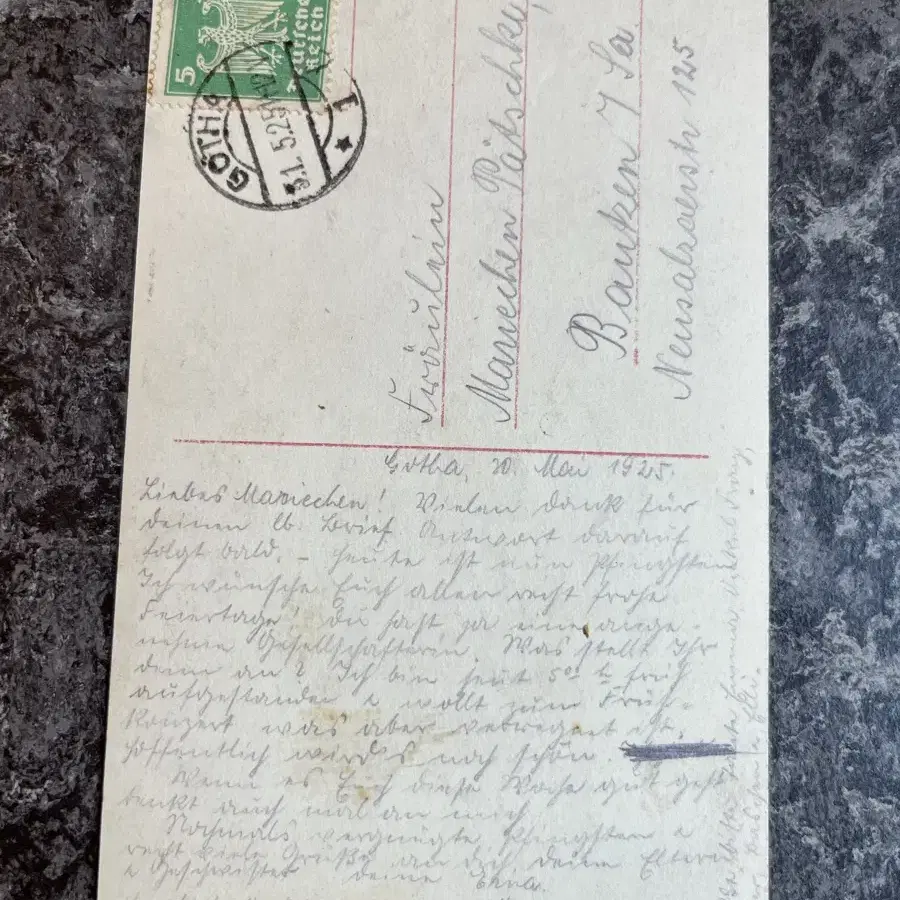 5
Deutsches Reich
GOTHA
31.5.25
1
Fräulein
Mariechen Pätschke,
Bautzen / Sa
Neusalzaerstr 125
Gotha, 20. Mai 1925.
Liebes Mariechen! Vielen Dank für
deinen lb. Brief. Antwort darauf
folgt bald. – Heute ist nun Pfingsten
Ich wünsche Euch allen recht frohe
Feiertage! Du hast ja eine ange-
nehme Gesellschafterin. Was stellt Ihr
denn an? Ich bin heut 5 früh
aufgestanden & wollt zum Früh-
konzert was aber verregnet ist.
Hoffentlich wird's noch schön.
Wenn es Euch diese Woche gut geht
denkt auch mal an mich
Nochmals vergnügte Pfingsten &
recht viele Grüße an dich, deine Eltern
& Geschwister deine